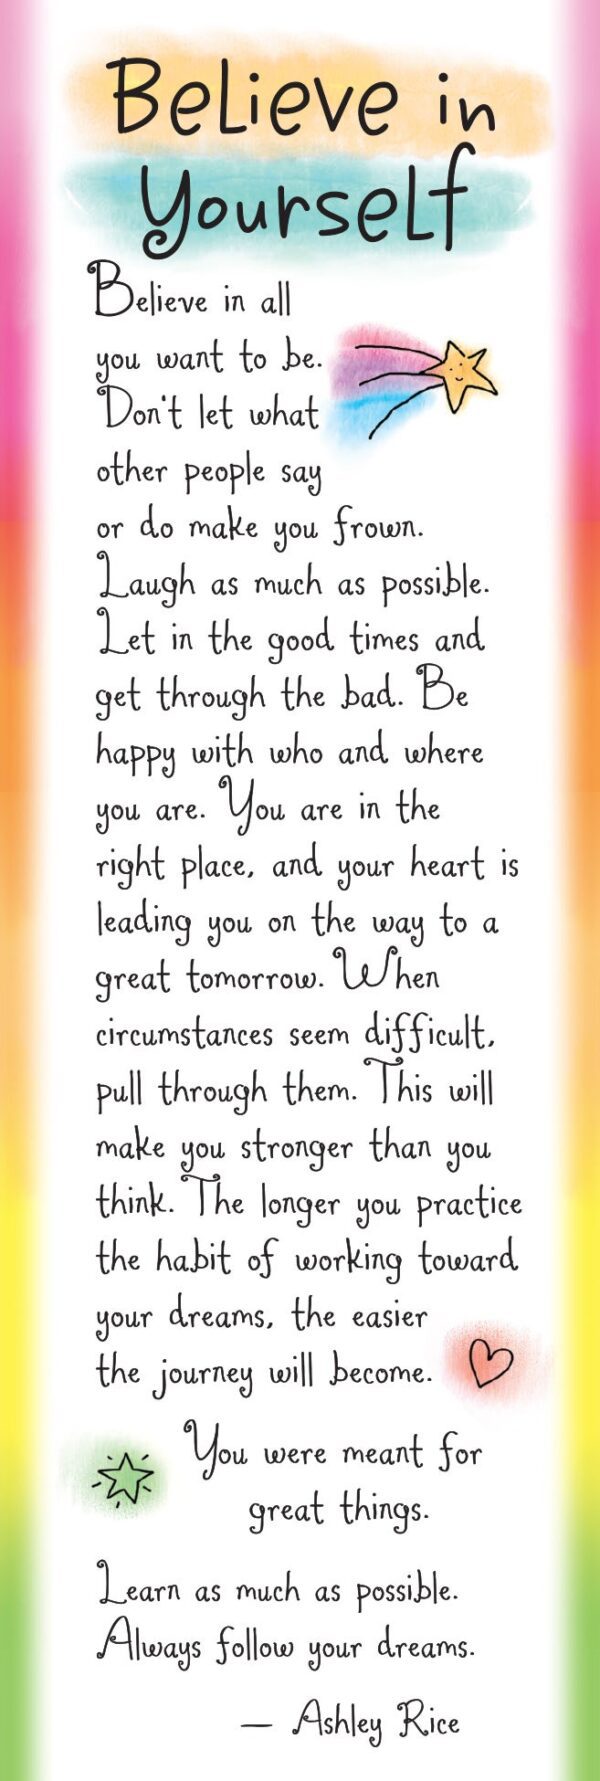 Believe in
Yourself
Believe in all
you want to be.
Don't let what
other people say
or do make you frown.
Laugh as much as possible.
Let in the good times and
get through the bad. Be
happy with who and where
you are. You are in the
right place, and your heart is
leading you on the way to a
great tomorrow. When
circumstances seem difficult,
pull through them. This will
make you stronger than you
think. The longer you practice
the habit of working toward
your dreams, the easier
the journey will become.
You were meant for
great things.
Learn as much as possible.
Always follow your dreams.
— Ashley Rice